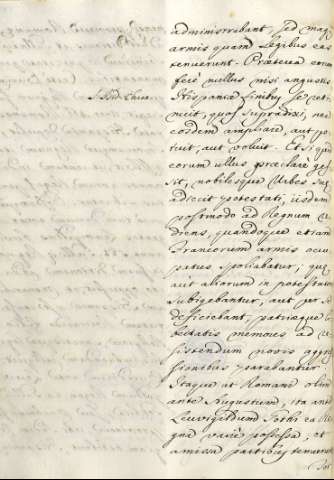 administrabant, sed mag
armis quam Legibus eas
tenuerunt. Præterea eorum
ferè nullus nisi angustis
Hispaniæ finibus se con
tinuit, quos supradixi, nec
eosdem ampliare, aut po
tuit, aut voluit. Et si quid
eorum ullus præclare ges
sit, nobilesque Urbes suæ
adiecit potestati, iisdem
postmodo ad Regnum
quandoque etiam
Francorum armis occu
patus spoliabatur; quæ
aut aliorum in potestatem
subigebantur, aut per s
deficiebant, patriæque li
bertatis memores ad re
sistendum novis aggre
ssionibus parabantur
Itaque ut Romani olim
ante Augustum, ita ante
Leuvigildum Gothi ea Re
gna varie possessa, et
amissa partibus tenuerunt